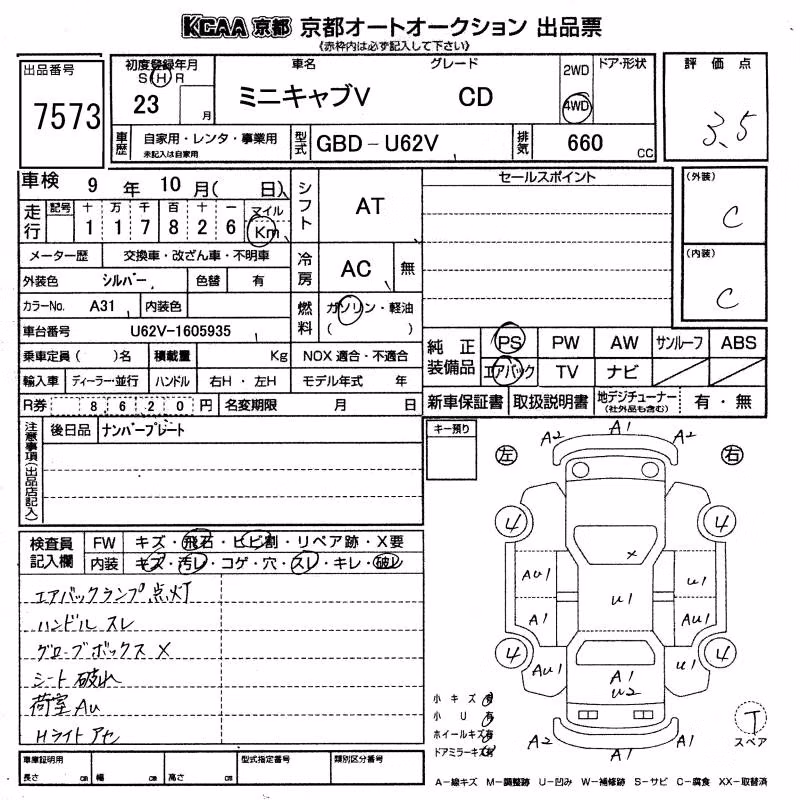 KCAA 京都 京都オートオークション 出品票
《赤枠内は必ず記入して下さい》
出品番号
7573
初度登録年月
S H R
23 月
車名 グレード
ミニキャブV CD
2WD
4WD
ドア・形状
車歴
自家用・レンタ・事業用
未記入は自家用
型式
GBD-U62V
排気
660 CC
評価点
3.5
車検 9 年 10 月( 日)
走行
記号 十 万 千 百 十 一
1 1 7 8 2 6
マイル
Km
メーター歴 交換車・改ざん車・不明車
外装色 シルバー 色替 有
カラーNo. A31 内装色
車台番号 U62V-1605935
乗車定員( )名 積載量 Kg
輸入車 ディーラー・並行 ハンドル 右H・左H
R券 8620 円 名変期限 月 日
シフト
AT
冷房
AC 無
燃料
ガソリン・軽油
( )
NOX 適合・不適合
モデル年式 年
セールスポイント
(外装)
C
(内装)
C
純正装備品
PS PW AW サンルーフ ABS
エアバック TV ナビ
新車保証書 取扱説明書 地デジチューナー
(社外品も含む)
有・無
注意事項(出品店記入)
後日品 ナンバープレート
キー預り
左
右
A2 A1 A2
4 4
AU1 A1 AU1
U1 AU1 U1
×
U1
A1
U2
4 4
A2 A1 A1
検査員記入欄
FW キズ・飛石・ヒビ割・リペア跡・X要
内装 キズ・汚レ・コゲ・穴・スレ・キレ・破レ
エアバックランプ点灯
ハンドル スレ
グローブボックス X
シート 破れ
荷室 AU
Hライト アセ
小キズ有
小U有
ホイールキズ有
ドアミラーキズ有
T
スペア
車庫証明用
長さ cm 幅 cm 高さ cm
型式指定番号
類別区分番号
A-線キズ M-調整跡 U-凹み W-補修跡 S-サビ C-腐食 XX-取替済